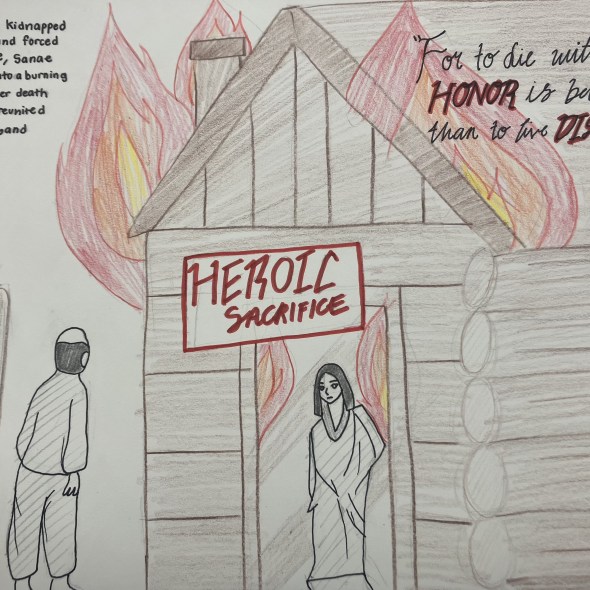 kidnapped
and forced
Sanae
into a burning
er death
reunited
"For to die wit
HONOR is be
than to live DIS
HEROIC
SACRIFICE